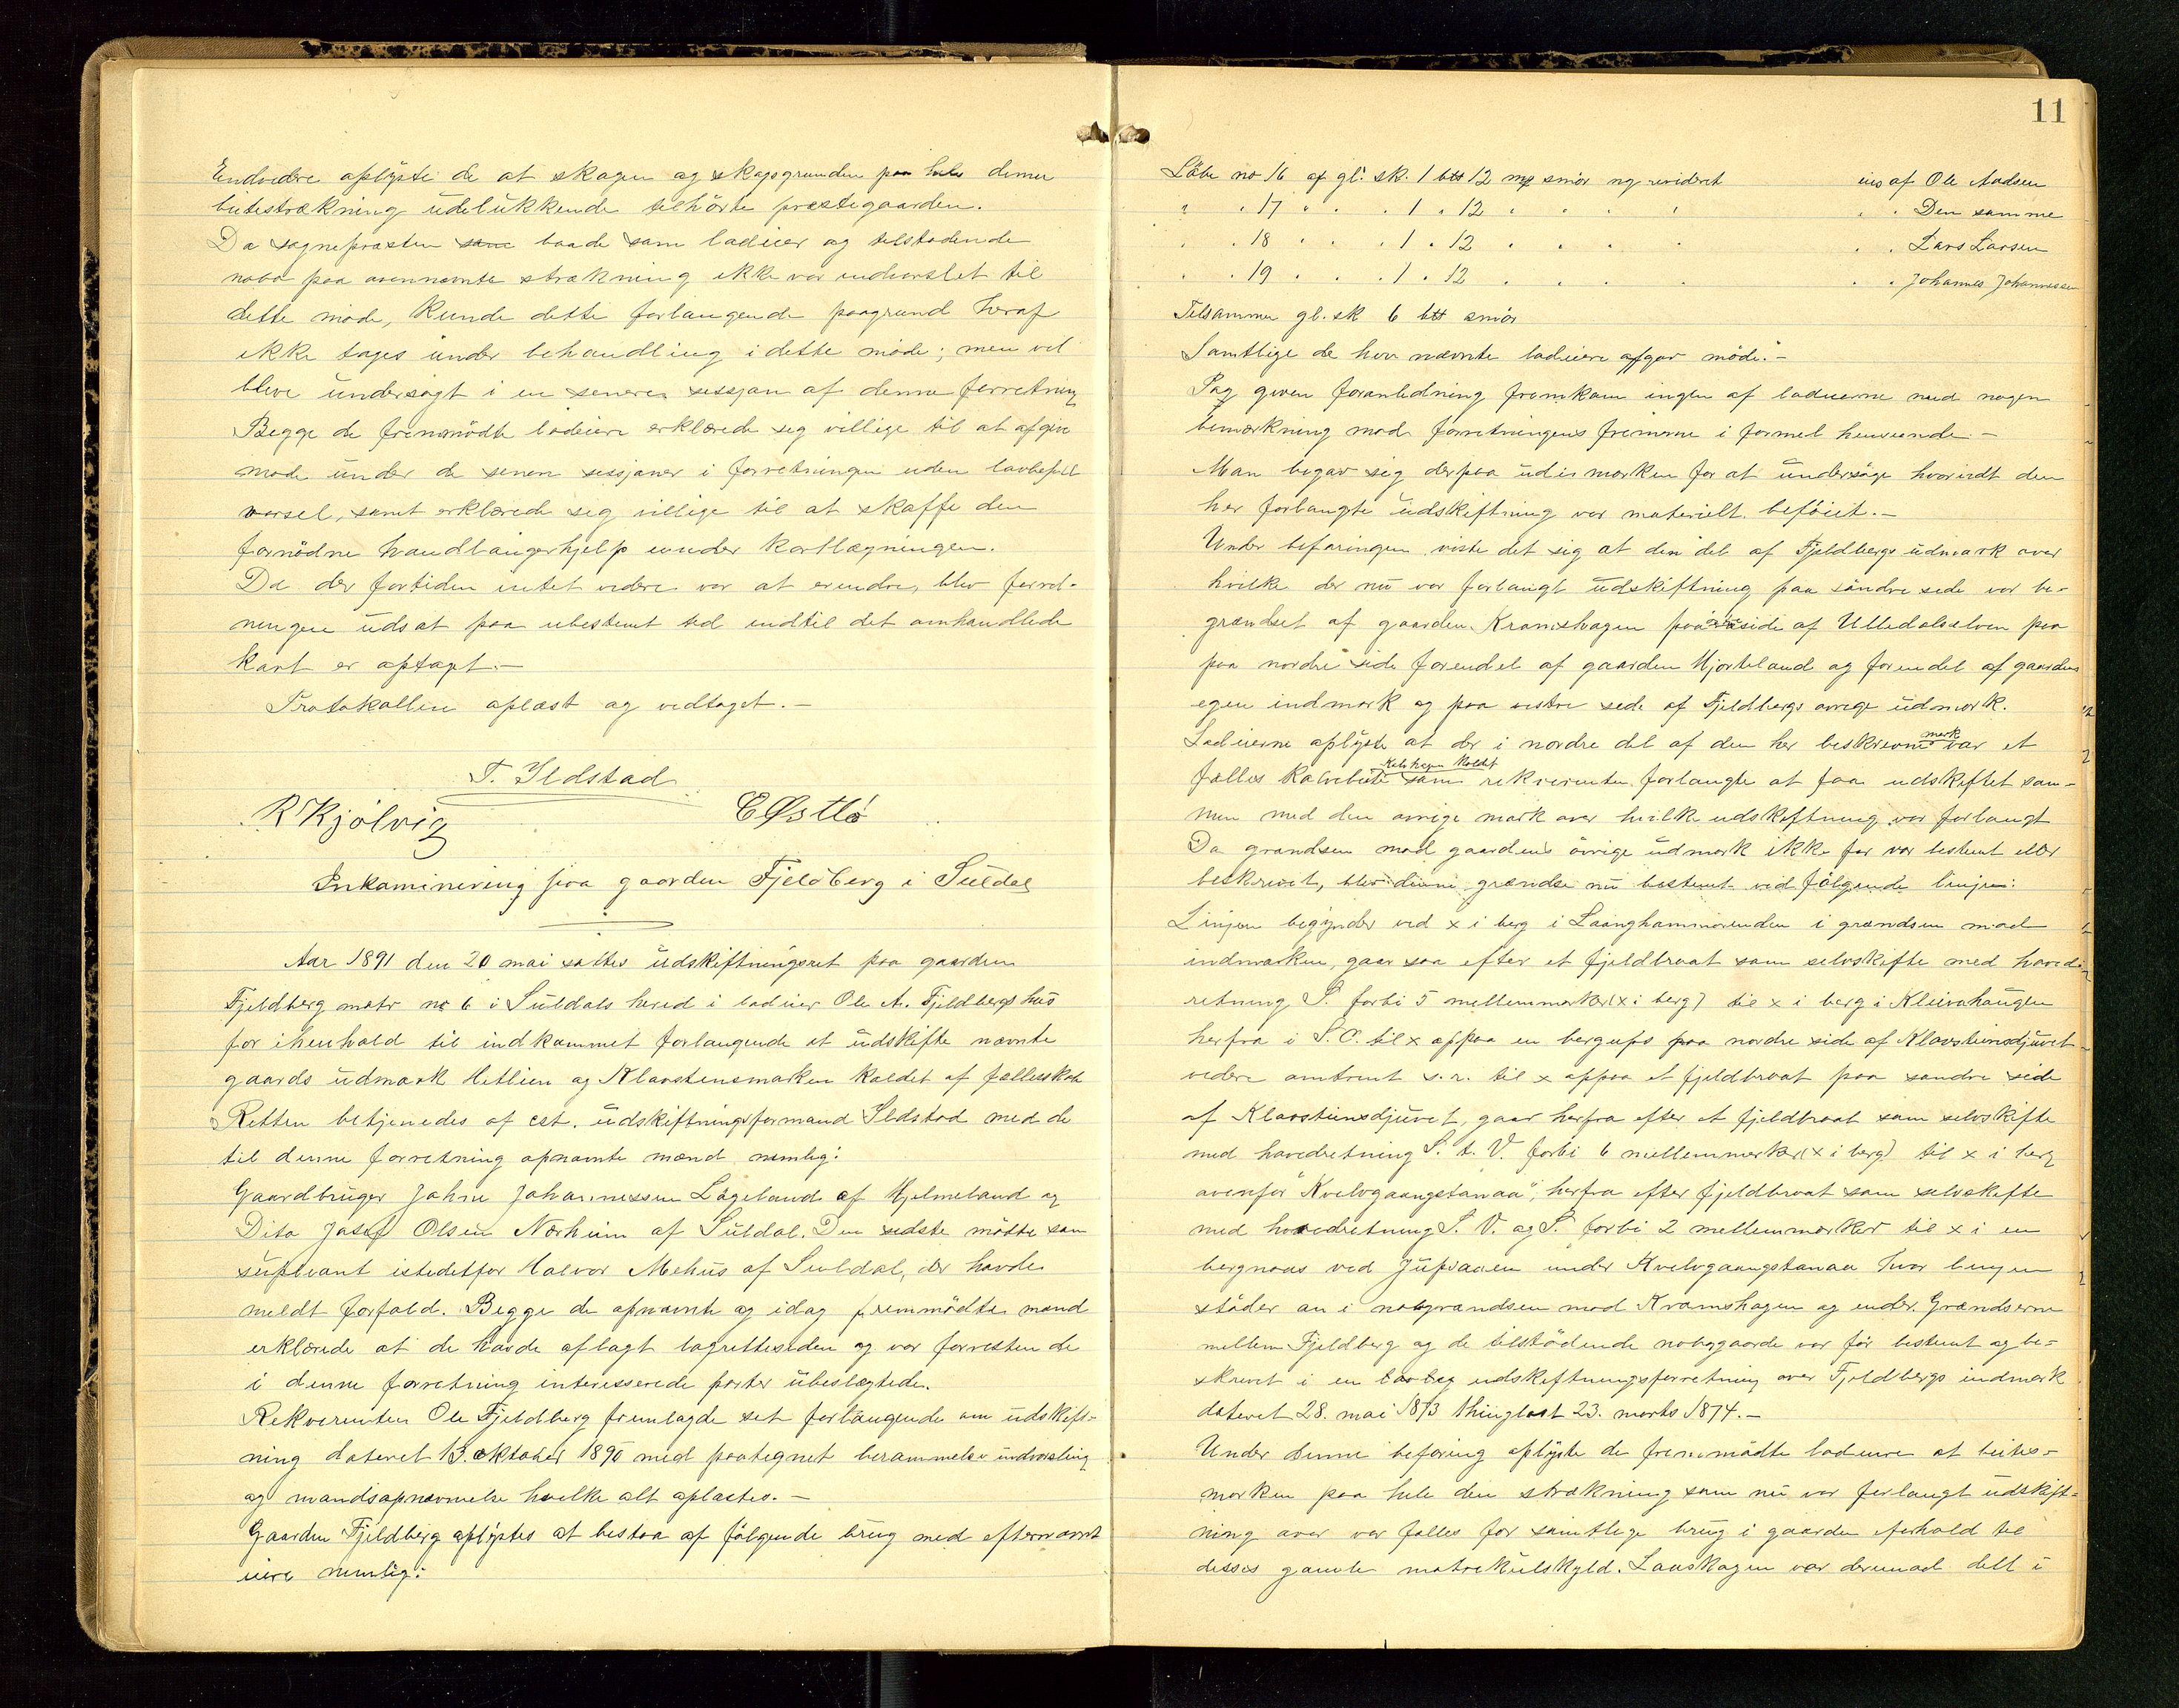 Endvidere oplyste de at skogen og skogsgrunden paa hele denne
beitestrækning udelukkende tilhörte præstegaarden.
Da sognepræsten baade som lodeier og tilstodende
nabo paa ovennævnte strækning ikke var indvarslet til
dette möde, kunde dette forlangende paagrund heraf
ikke tages under behandling i dette möde; men vil
blive undersögt i en senere sessjon af denne forretning
Begge de fremmödte lodeiere erklærede seg villige til at afgive
möde under de senere sessjoner i forretningen uden lovbefalt
varsel, samt erklærede sig villige til at skaffe den
fornödne haandlangerhjelp under kartlægningen.
Da der fortiden intet videre var at erindre, blev forret-
ningen udsat paa ubestemt tid indtil det omhandlede
kart er optaget.-
Protokollen oplæst og vedtaget.-
T. Ildstad
R Kjölvig E Østlö
Inkaminering paa gaarden Fjeldberg i Suldal
Aar 1891 den 20 mai sattes udskiftningsret paa gaarden
Fjeldberg matr no 6 i Suldals hered i lodeier Ole A. Fjeldbergs hus
for ihenhold til indkommet forlangende at udskifte nævnte
gaards udmark Hetlien og Klovstensmarken kaldet af fællesskab
Retten betjenedes af cst. udskiftningsformand Ildstad med de
til denne forretning opnævnte mænd nemlig:
Gaardbruger Johne Johannessen Lögeland af Hjelmeland og
Dito Josef Olsen Nærheim af Suldal. Den sidste mötte som
supleant istedetfor Halvor Mehus af Suldal, der havde
meldt forfald. Begge de opnævnte og idag fremmödte mænd
erklærede at de havde aflagt lagretteseden og var forresten de
i denne forretning interesserede parter ubeslægtede.
Rekvirenten Ole Fjeldberg fremlagde set forlangende om udskift-
ning dateret 13. oktober 1890 med paategnet berammelse indvarsling
og mandsopnævnelse hvilke alt oplæstes.-
Gaarden Fjeldberg oplystes at bestaa af fölgende brug med efternævnt
eiere nemlig:
11
Löbe no 16 af gl. sk. 1 btt 12 mp smör ny revideret eies af Ole Aadsen
" " 17 " " " 1 " 12 " " " " " " Den samme
" " 18 " " " 1 " 12 " " " " " " Lars Larsen
" " 19 " " " 1 " 12 " " " " " " Johannes Johannessen
Tilsammen gl. sk 6 btt smör
Samtlige de her nævnte lodeiere afgav möde.-
Paa given foranledning fremkom ingen af lodeierne med nogen
bemærkning mod forretningens fremme i formel henseende-
Man begav sig derpaa ud i marken for at undersöge hvorvidt den
her forlangte udskiftning var materielt beföiet.-
Under befaringen viste det sig at den del af Fjeldbergs udmark over
hvilke der nu var forlangt udskiftning paa söndre side var be-
grændset af gaarden Kramshagen paa side af Ulledalselven paa
paa nordre side forendel af gaarden Hjorteland og forendel af gaardens
egen indmark og paa vestre side af Fjeldbergs övrige udmark.
Lodeierne oplyste at der i nordre del af den her beskrevne mark var et
fælles kalvebeite som rekvirenten forlangte at faa udskiftet sam-
men med den övrige mark over hvilke udskiftning var forlangt
Da grændsen mod gaardens övrige udmark ikke för var bestemt eller
beskrevet, blev denne grændse nu bestemt ved fölgende linjer:
Linjen begynder ved x i berg i Laanghammarenden i grændsen mod
indmarken, gaar saa efter et fjeldbraat som selvskifte med hoved-
retning S. forbi 5 mellemmerker (x i berg) til x i berg i Kleivahaugen
herfra i S.O. til x oppaa en bergups paa nordre side af Klovsteinsdjuvet-
videre omtrent s.r. til x oppaa et fjeldbraat paa söndre side
af Klovsteinsdjuvet, gaar herfra efter et fjeldbraat som selvskifte
med hovedretning S. t. V. forbi 6 mellemmerker (x i berg) til x i berg
ovenfor "Kvelvgaangstanaa", herfra efter fjeldbraat som selvskifte
med hovedretning S. V. og S. forbi 2 mellemmerker til x i en
bergnaas ved Jupaaen under Kvelvgaangstanaa hvor linjen
stöder an i nabogrændsen mod Kramshagen og ender. Grændserne
mellem Fjeldberg og de tilstödende nabogaarde var för bestemt og be-
skrevet i en lovlig udskiftningsforretning over Fjeldbergs indmark
dateret 28. mai 1873 thinglæst 23. marts 1874.-
Under denne befaring oplyste de fremmödte lodeiere at beites-
marken paa hele den strækning som nu var forlangt udskift-
ning over var fælles for samtlige brug i gaarden iforhold til
disses gamle matrikulskyld. Lauvskogen var derimod delt i